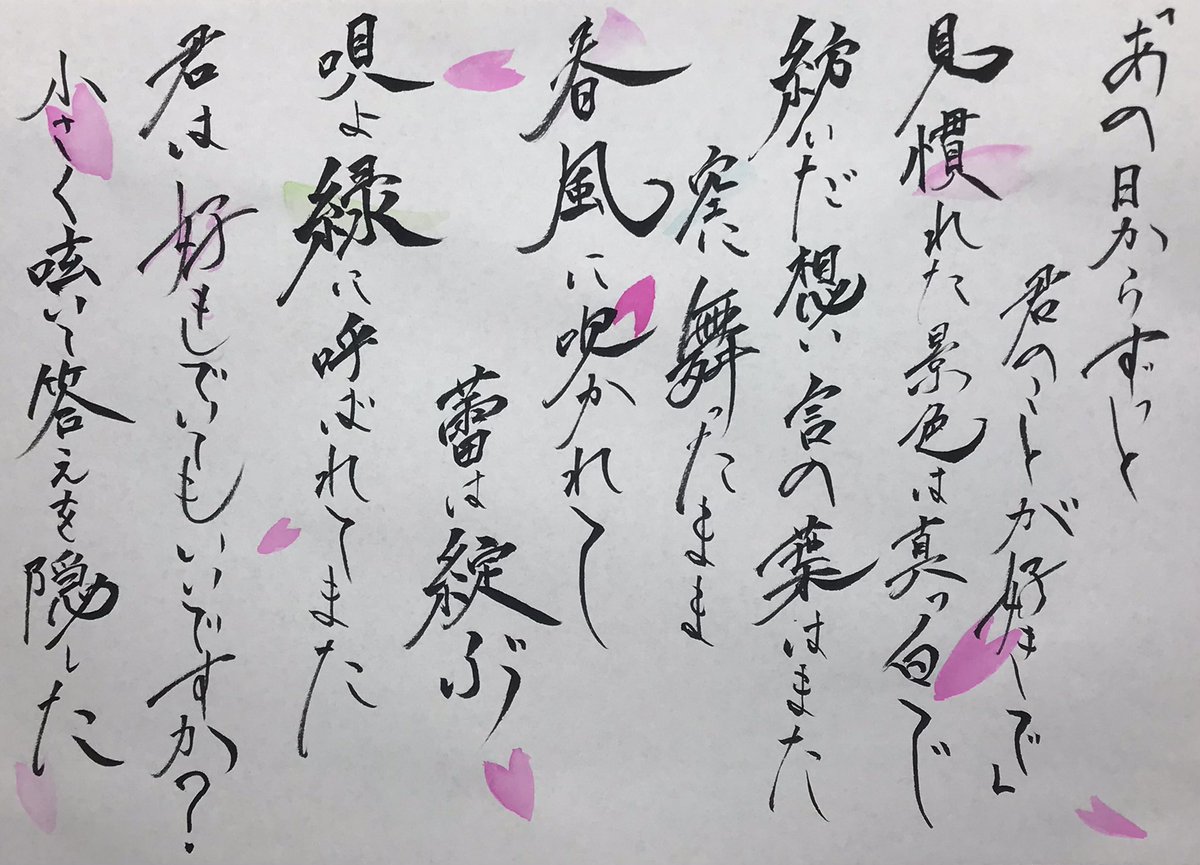 「あの日からずっと
君のことが好きで」
見慣れた景色は真っ白で
紡いだ想い言の葉はまた
空に舞ったまま
春風に吹かれて
蕾は綻ぶ
唄よ緑に呼ばれてまた
君は好きでいてもいいですか?
小さく呟いて答えを隠した